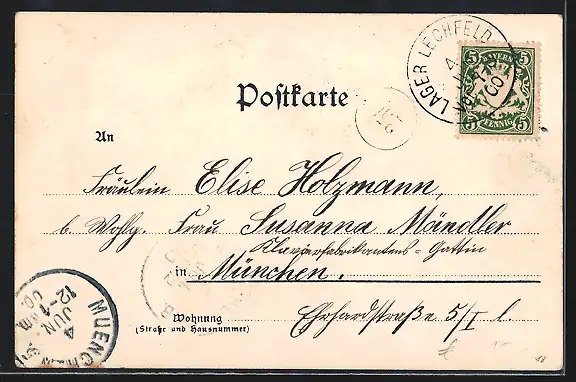 LAGER LECHFELD
BAYERN
5 5
PFENNIG
5 5
Postkarte
An
Fräulein Elise Holzmann,
b. Wohlg. Frau Susanna Mändler
Klavierfabrikantens-Gattin
in München.
Wohnung
(Straße und Hausnummer)
Ehrhardstraße 5/I l.
MUENCHEN
4
JUN
12-1